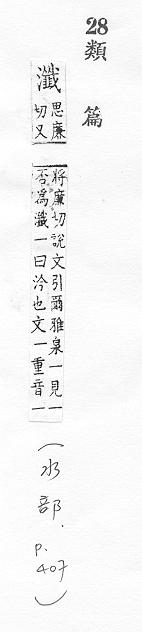 28 類篇
瀸
思廉
切又
將廉切說文引爾雅泉一見一
否為瀸一曰泠也文一重音一
(水部. p. 407)